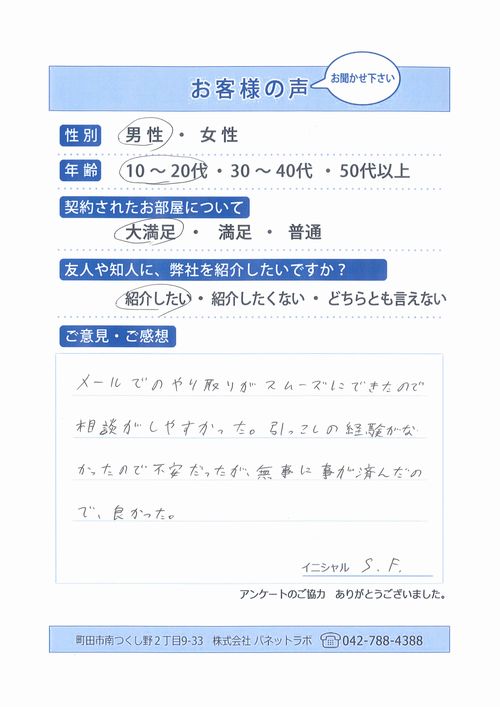 お客様の声
お聞かせ下さい
性別 男性 ・ 女性
年齢 10 ～ 20代 ・ 30 ～ 40代 ・ 50代以上
契約されたお部屋について
大満足 ・ 満足 ・ 普通
友人や知人に、弊社を紹介したいですか？
紹介したい ・ 紹介したくない ・ どちらとも言えない
ご意見・ご感想
メールでのやり取りがスムーズにできたので
相談がしやすかった。引っこしの経験がな
かったので不安だったが、無事に事が済んだの
で、良かった。
イニシャル S.F.
アンケートのご協力 ありがとうございました。
町田市南つくし野２丁目9-33 株式会社 バネットラボ ☎042-788-4388